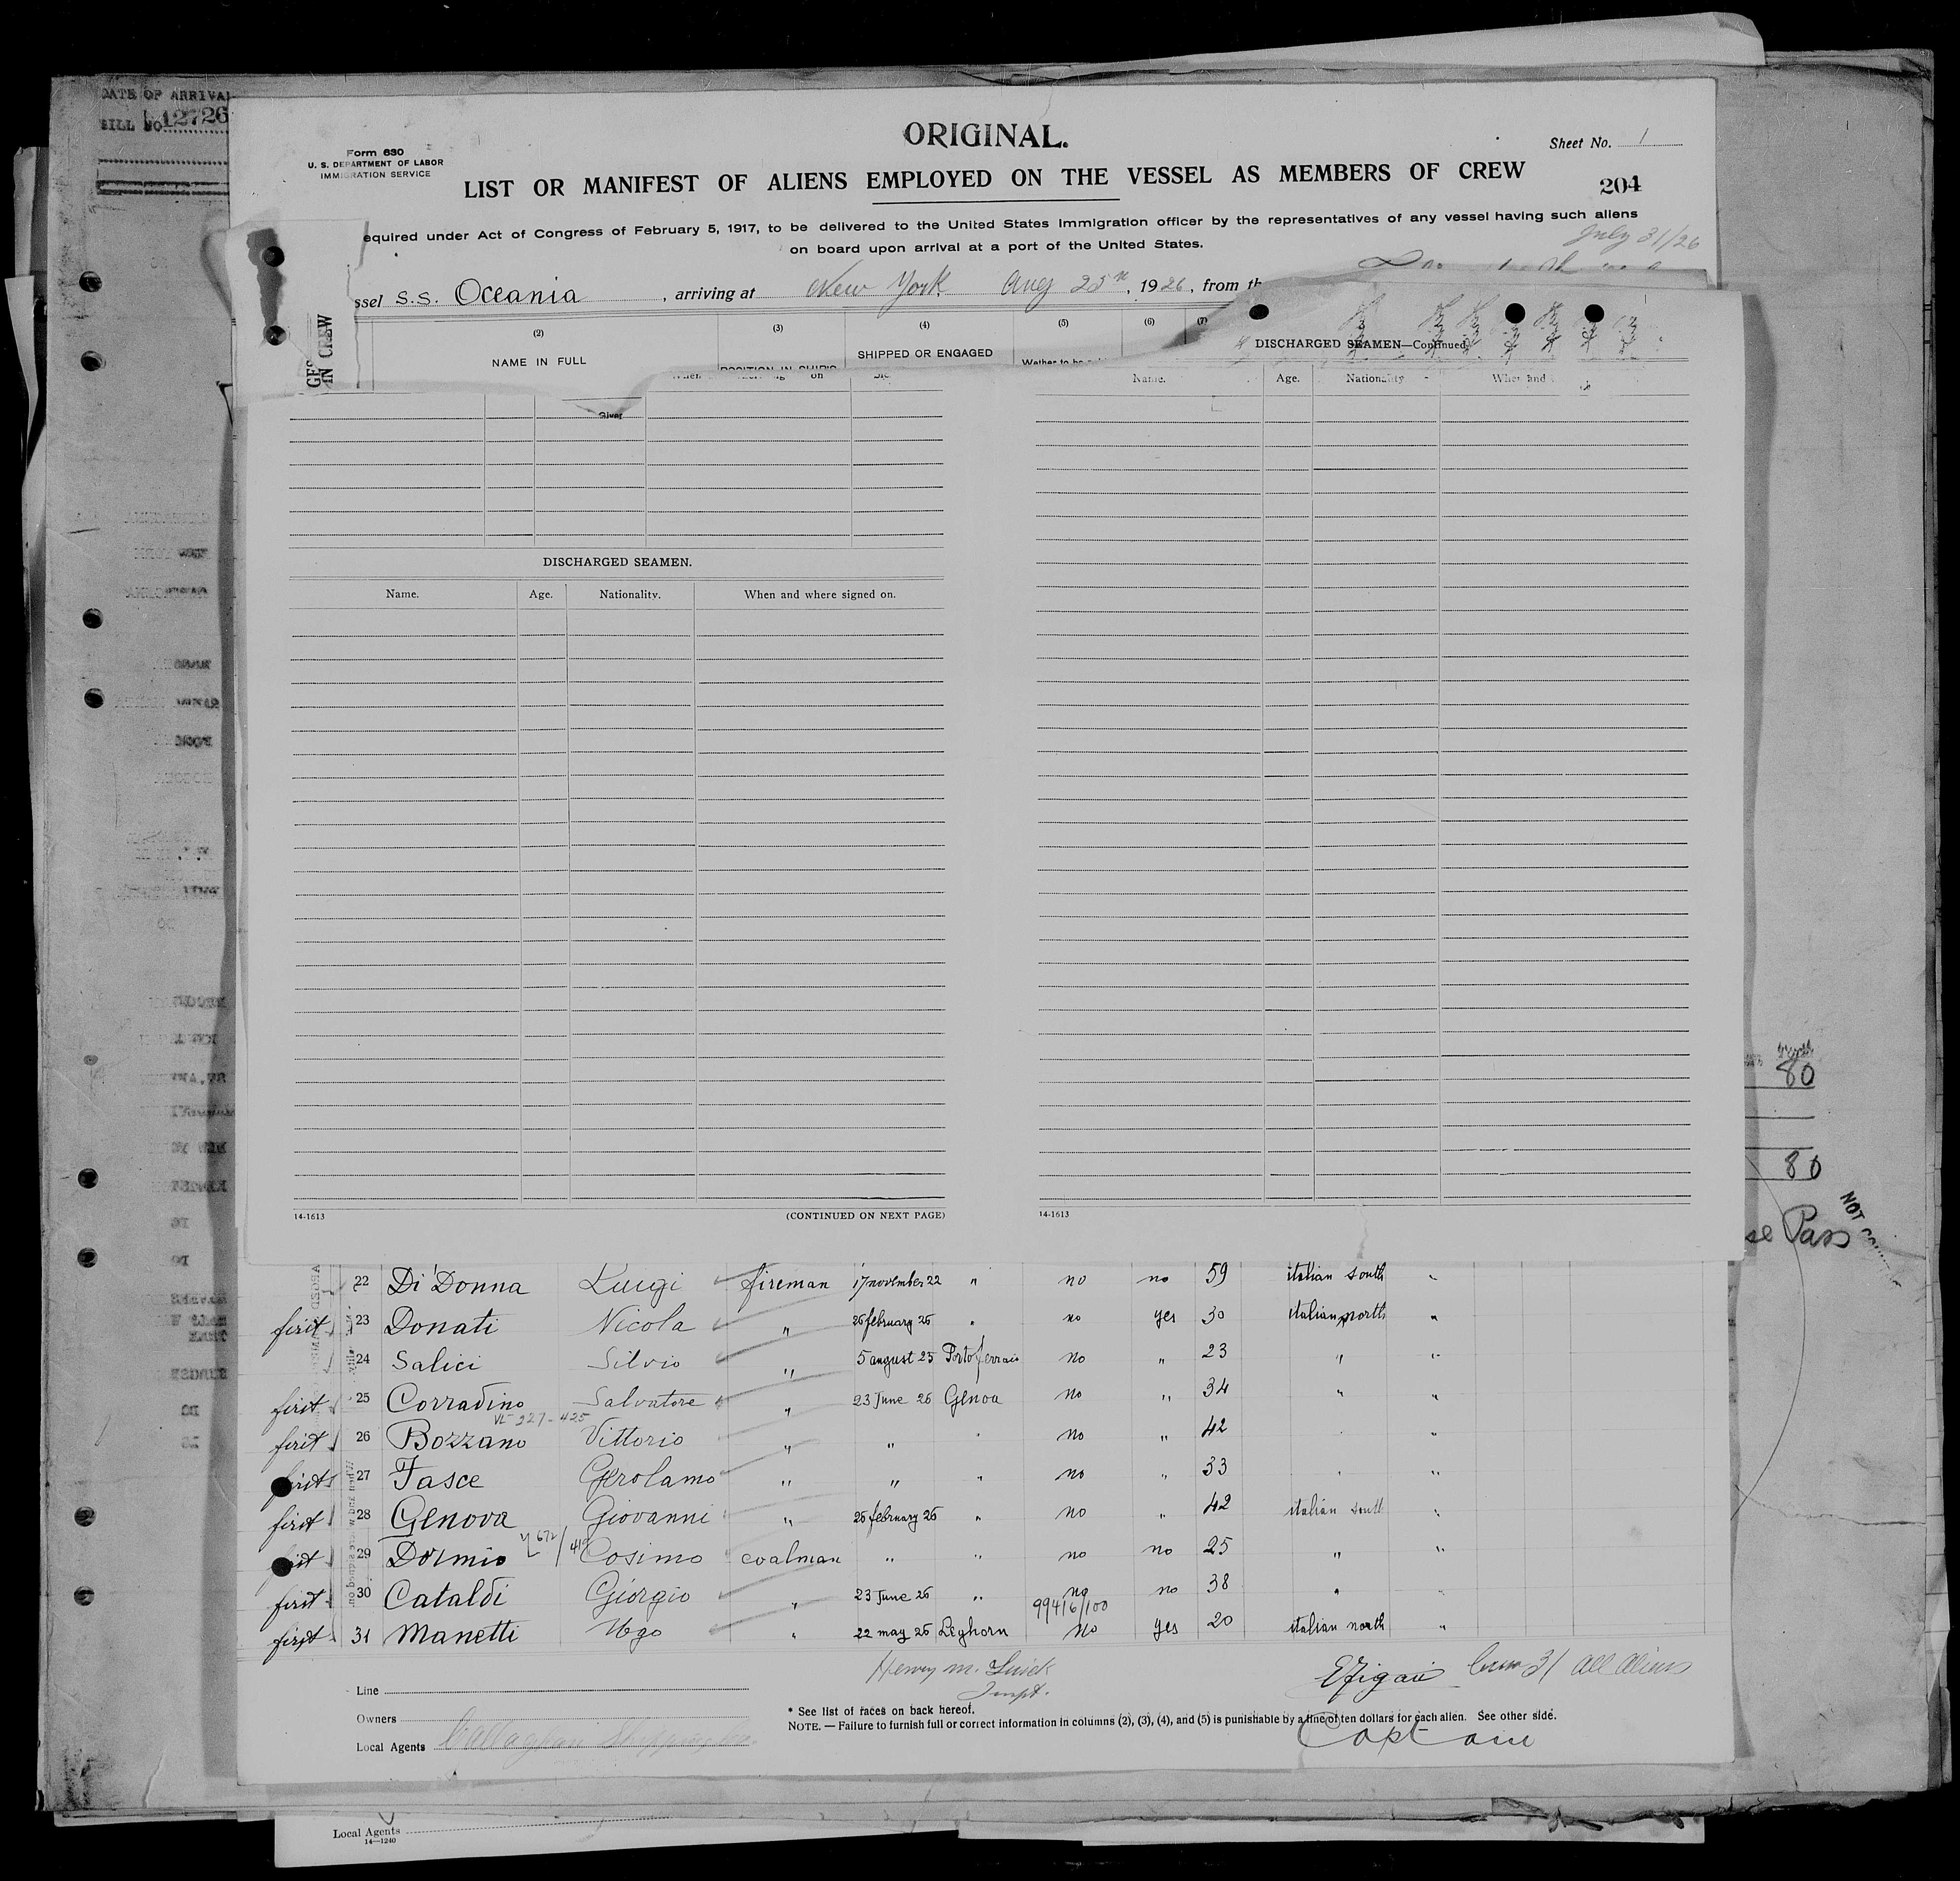 DATE OF ARRIVAL
BILL NO. 12726
ORIGINAL.
Sheet No. 1
Form 630
U. S. DEPARTMENT OF LABOR
IMMIGRATION SERVICE
LIST OR MANIFEST OF ALIENS EMPLOYED ON THE VESSEL AS MEMBERS OF CREW
204
equired under Act of Congress of February 5, 1917, to be delivered to the United States immigration officer by the representatives of any vessel having such aliens
on board upon arrival at a port of the United States.
July 31/26
ssel S.S. Oceania, arriving at New York Aug 25th, 1926, from th
(2) (3) (4) (5) (6) (7)
NAME IN FULL
SHIPPED OR ENGAGED
IN CREW
Given
DISCHARGED SEAMEN—Continued
Name. Age. Nationality When and
DISCHARGED SEAMEN.
Name. Age. Nationality. When and where signed on.
14-1613 (CONTINUED ON NEXT PAGE) 14-1613
80
80
Pass
NOT
22 Di Donna Luigi fireman 17 november 22 " no no 59 italian south "
first 23 Donati Nicola " 26 february 26 " no yes 30 italian north "
24 Salici Silvio " 5 august 25 Portoferraio no " 23 " "
first 25 Corradino Salvatore " 23 June 26 Genoa no " 34 " "
227-425
first 26 Bozzano Vittorio " " " no " 42 " "
first 27 Fasce Gerolamo " " " no " 33 " "
first 28 Genova Giovanni " 26 february 26 " no " 42 italian south "
672/419
first 29 Dormio Cosimo coalman " " no no 25 " "
first 30 Cataldi Giorgio " 23 June 26 " no no 38 " "
99416/100
first 31 Manetti Ugo " 22 may 26 Leghorn no yes 20 italian north "
Henry M.
Inspt.
31 All Aliens
Line
Owners
Local Agents Callaghan
* See list of races on back hereof.
NOTE. — Failure to furnish full or correct information in columns (2), (3), (4), and (5) is punishable by a fine of ten dollars for each alien. See other side.
Captain
Local Agents
14—1240